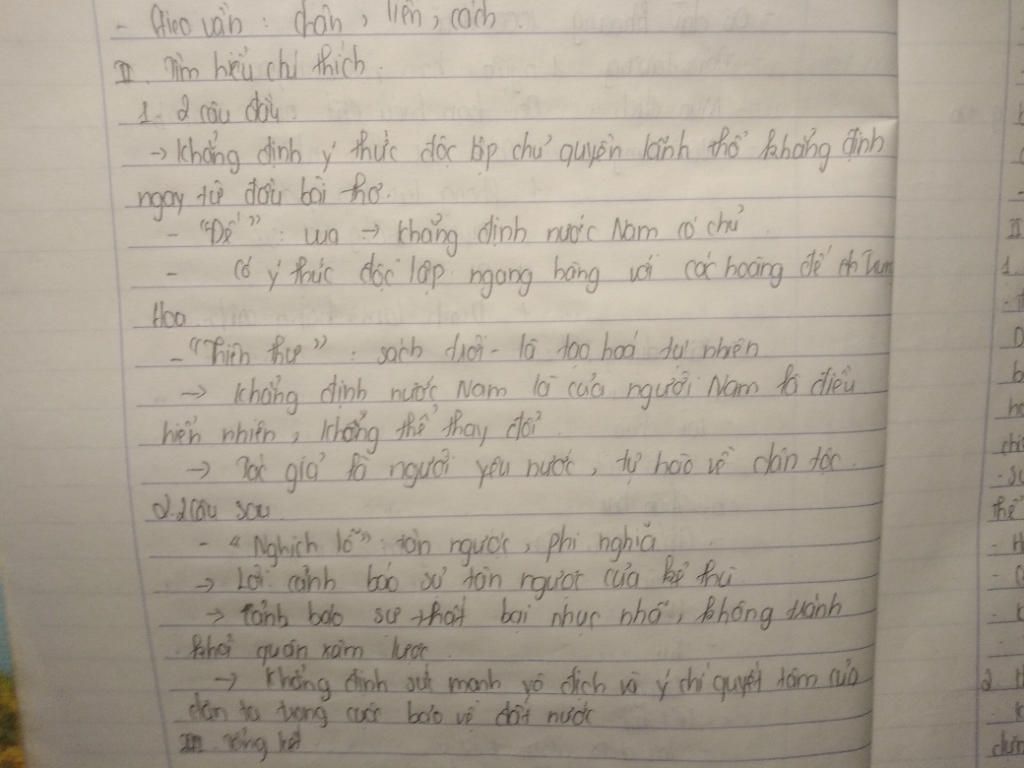 - Gieo vần : chân, liền, cách.
II. Tìm hiểu chi thích.
1. 2 câu đầu.
→ Khẳng định ý thức độc lập chủ quyền lãnh thổ khẳng định
ngay từ đầu bài thơ.
- "Đế" : vua → khẳng định nước Nam có chủ
- có ý thức độc lập ngang hàng với các hoàng đế ch Trung
Hoa
- "Thiên thư" : sách trời - là tạo hoá tự nhiên
→ khẳng định nước Nam là của người Nam là điều
hiển nhiên, không thể thay đổi.
→ Tác giả là người yêu nước, tự hào về dân tộc.
2. 2 câu sau.
- "Nghịch lỗ" : tàn ngược, phi nghĩa
→ Lời cảnh báo sự tàn ngược của kẻ thù
→ cảnh báo sự thất bại nhục nhã, không tránh
khỏi quân xâm lược.
→ Khẳng định sức mạnh vô địch và ý chí quyết tâm của
dân ta trong cuộc bảo vệ đất nước
III Tổng kết
II
1.
2.